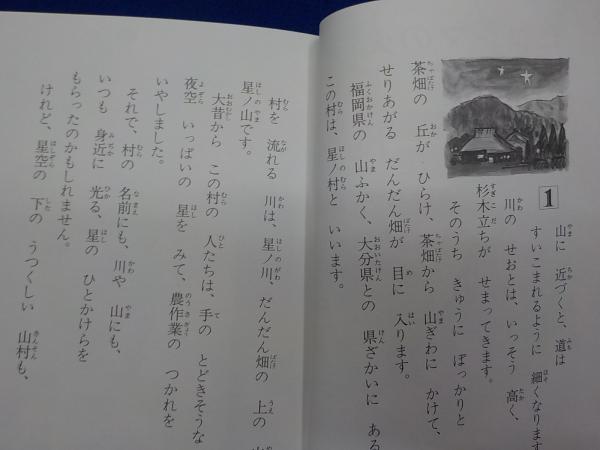 1
山に 近づくと、道は
すいこまれるように 細くなります
川の せおとは、いっそう 高く、
杉木立ちが せまってきます。
そのうち きゅうに ぽっかりと
茶畑の 丘が ひらけ、茶畑から 山ぎわに かけて、
せりあがる だんだん畑が 目に 入ります。
福岡県の 山ふかく、大分県との 県ざかいに ある
この村は、星ノ村と いいます。
村を 流れる 川は、星ノ川、だんだん畑の 上の
星ノ山です。
大昔から この村の 人たちは、手の とどきそうな
夜空 いっぱいの 星を みて、農作業の つかれを
いやしました。
それで、村の 名前にも、川や 山にも、
いつも 身近に 光る、星の ひとかけらを
もらったのかもしれません。
けれど、星空の 下の うつくしい 山村も、